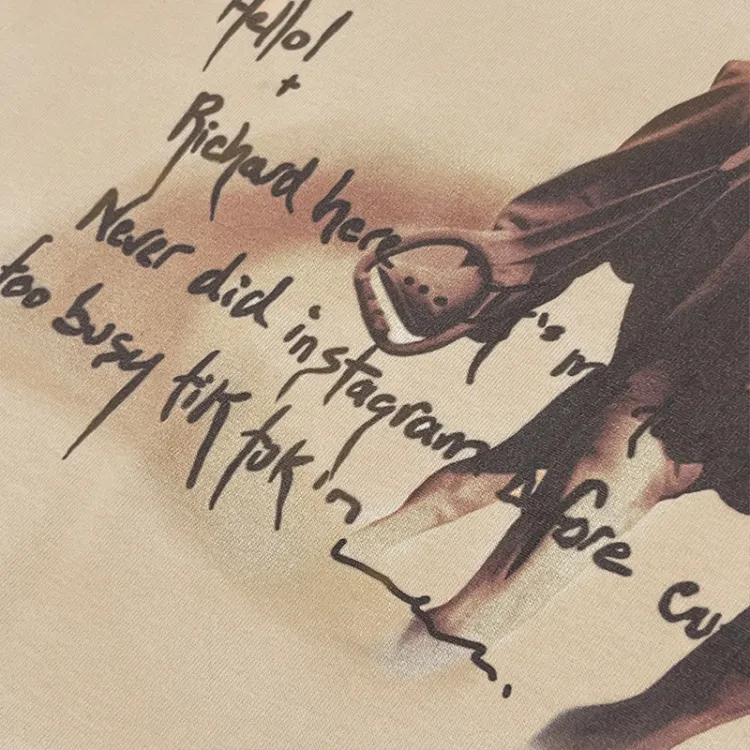 Hello!
+
Richard here
Never did instagram Before
too busy tik tok in